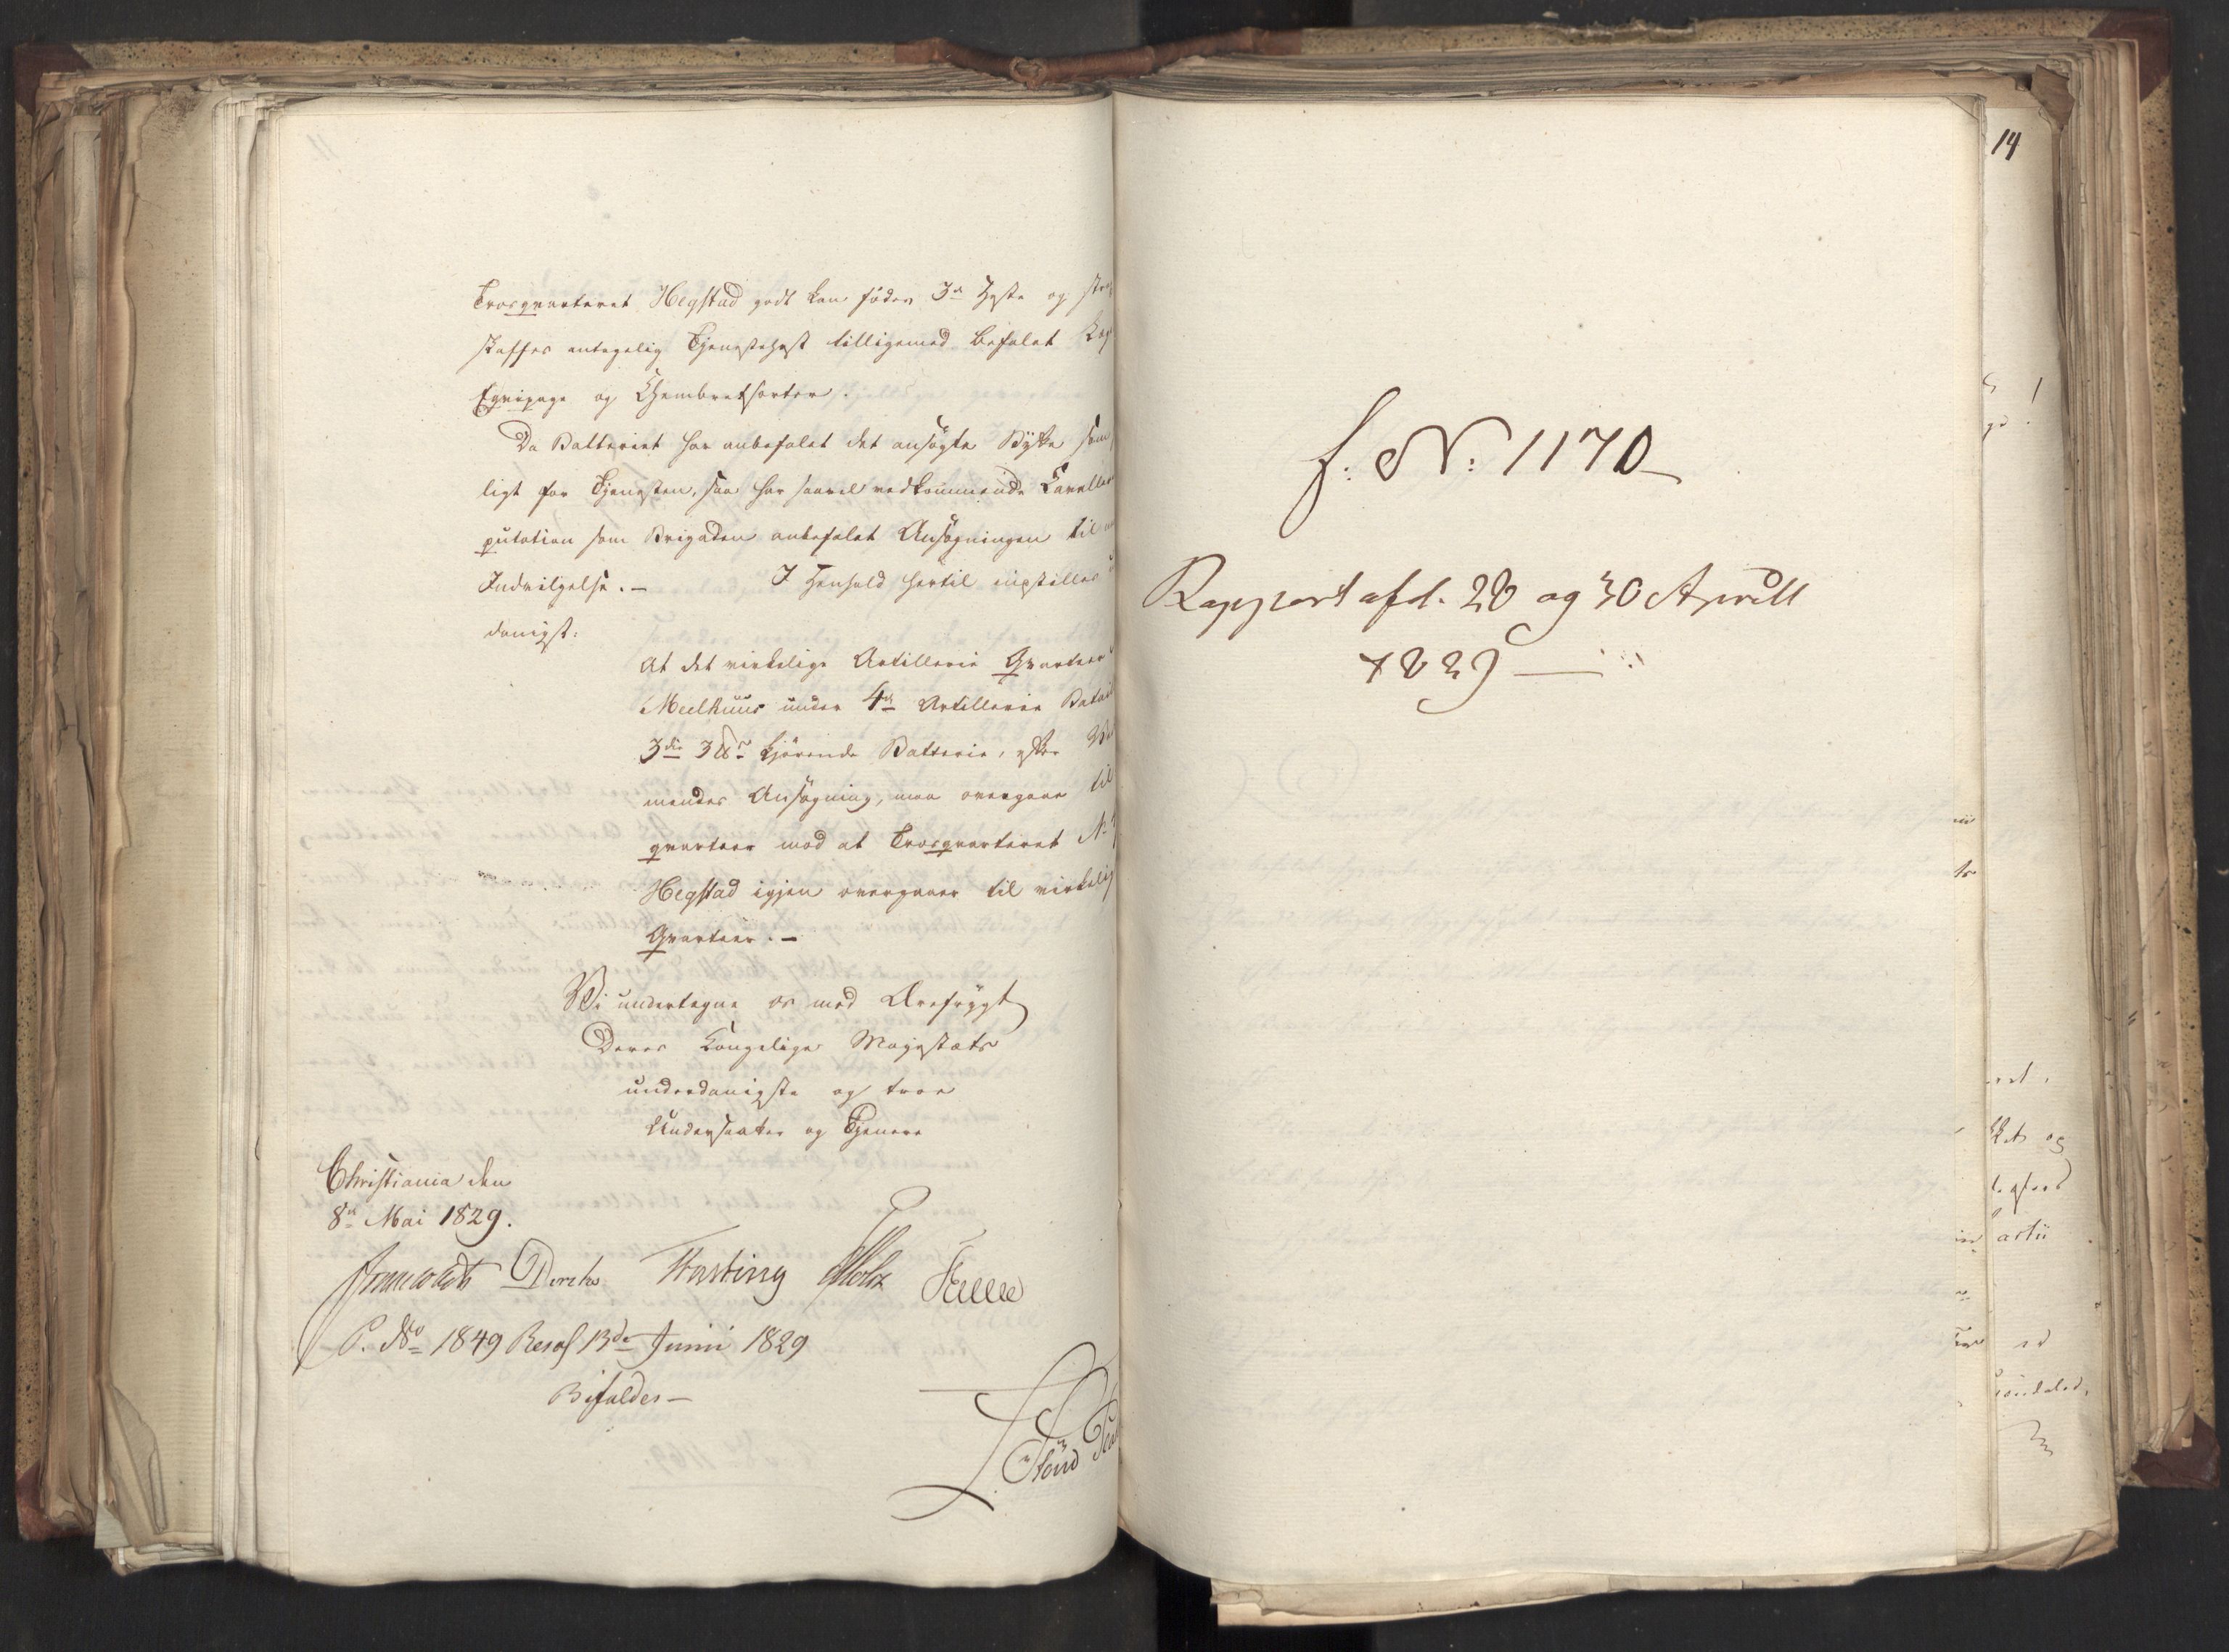 Trosqvarteret Hegstad godt kan föde 3de Heste og
skaffes antagelig Tjenestehest tilligemed befalet
Eqvipage og Chambretsorter.
Da Batteriet har anbefalet det ansögte Bytte som
ligt for Tjenesten, saa har saavel vedkommende
putation som Brigaden anbefalet Ansögningen til
Indvilgelse. — I Henhold hertil indstilles
danigst:
At det virkelige Artillerie Qvarteer
Meelhuus under 4de Artillerie
3die 3 kjörende Batterie, efter
mendes Ansögning, maa overgaae til
qvarteer mod at Trosqvarteret
Hegstad igjen overgaaer til virkelig
Qvarteer. —
Vi undertegne os med Ærefrygt
Deres Kongelige Majestæts
underdanigste og troe
Undersaatter og Tjenere
Christiania den
8de Mai 1829.
Diriks Fasting Holst
P. No 1849 Resol 13de Junii 1829
Bifaldes —
14
f: N: 1170
Rapport afd. 28 og 30 Aprill
1829 —